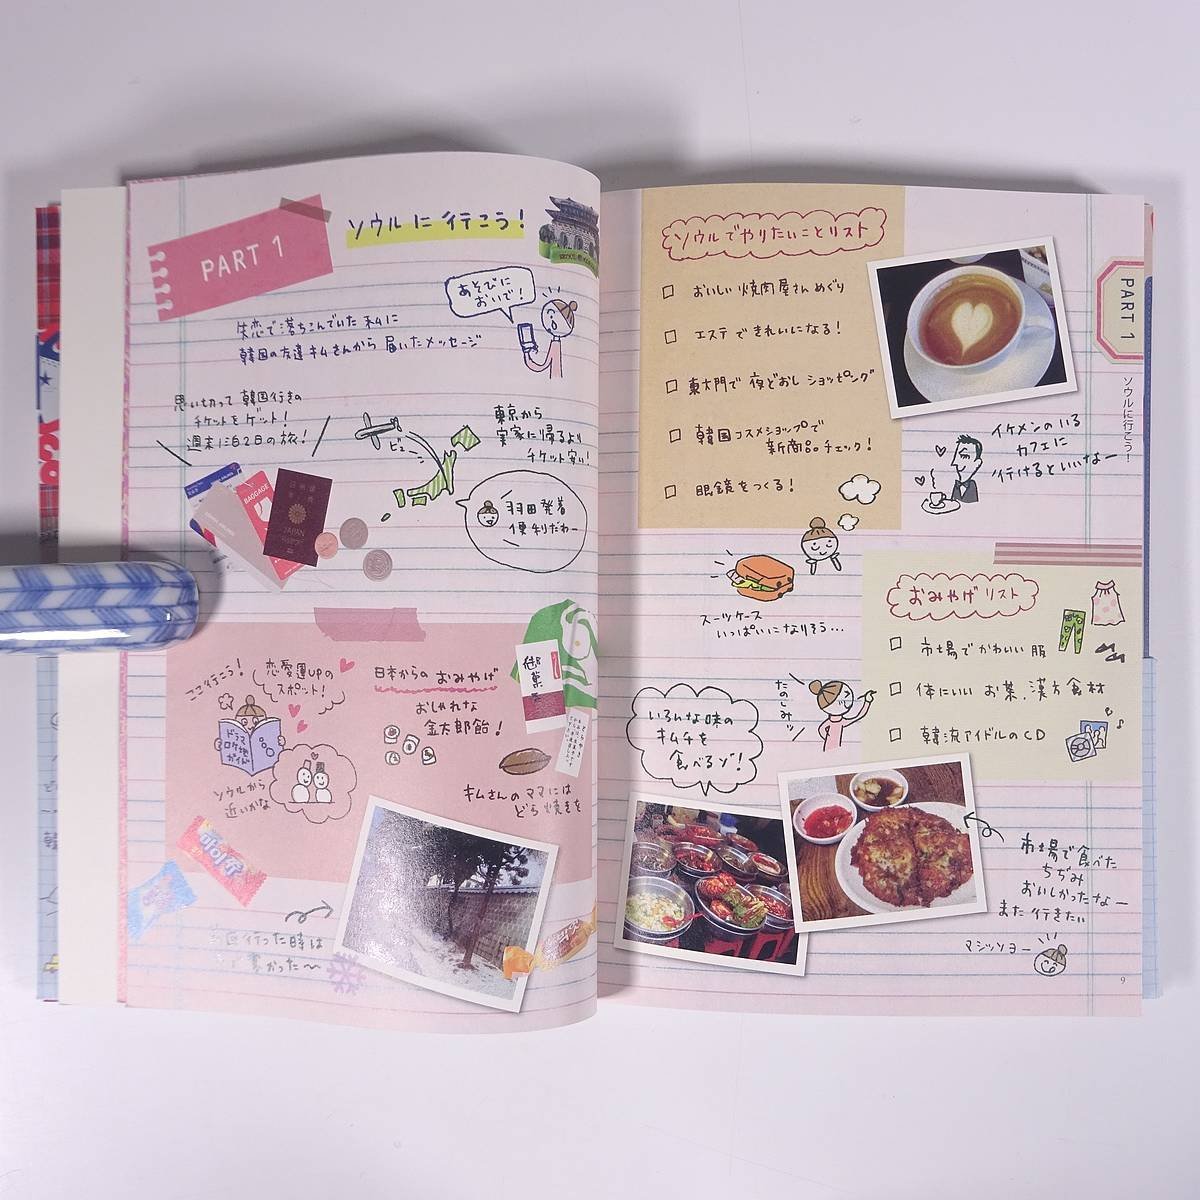 PART 1
ソウルに行こう!
あそびに
おいで!
失恋で落ちこんでいた私に
韓国の友達キムさんから届いたメッセージ
思い切って韓国行きの
チケットをゲット!
週末に2泊2日の旅!
ビュー
東京から
実家に帰るより
チケット安い!
羽田発着
便利だわー
BAGGAGE
JAPAN
ここ行こう!
恋愛運UPの
スポット!
ドラマ
ロケ地
ガイド
ソウルから
近いかな
日本からのおみやげ
おしゃれな
金太郎飴!
御菓
キムさんのママには
どら焼きを
마이쮸
行った時は
寒かった〜
ソウルでやりたいことリスト
□ おいしい焼肉屋さんめぐり
□ エステできれいになる!
□ 東大門で夜どおしショッピング
□ 韓国コスメショップで
新商品チェック!
□ 眼鏡をつくる!
イケメンのいる
カフェに
行けるといいなー
PART 1
ソウルに行こう!
スーツケース
いっぱいになりそう…
おみやげリスト
□ 市場でかわいい服
□ 体にいいお茶、漢方食材
□ 韓流アイドルのCD
たのしみッ
いろんな味の
キムチを
食べるゾ!
市場で食べた
ちぢみ
おいしかったなー
また行きたい
マシッソヨー
9